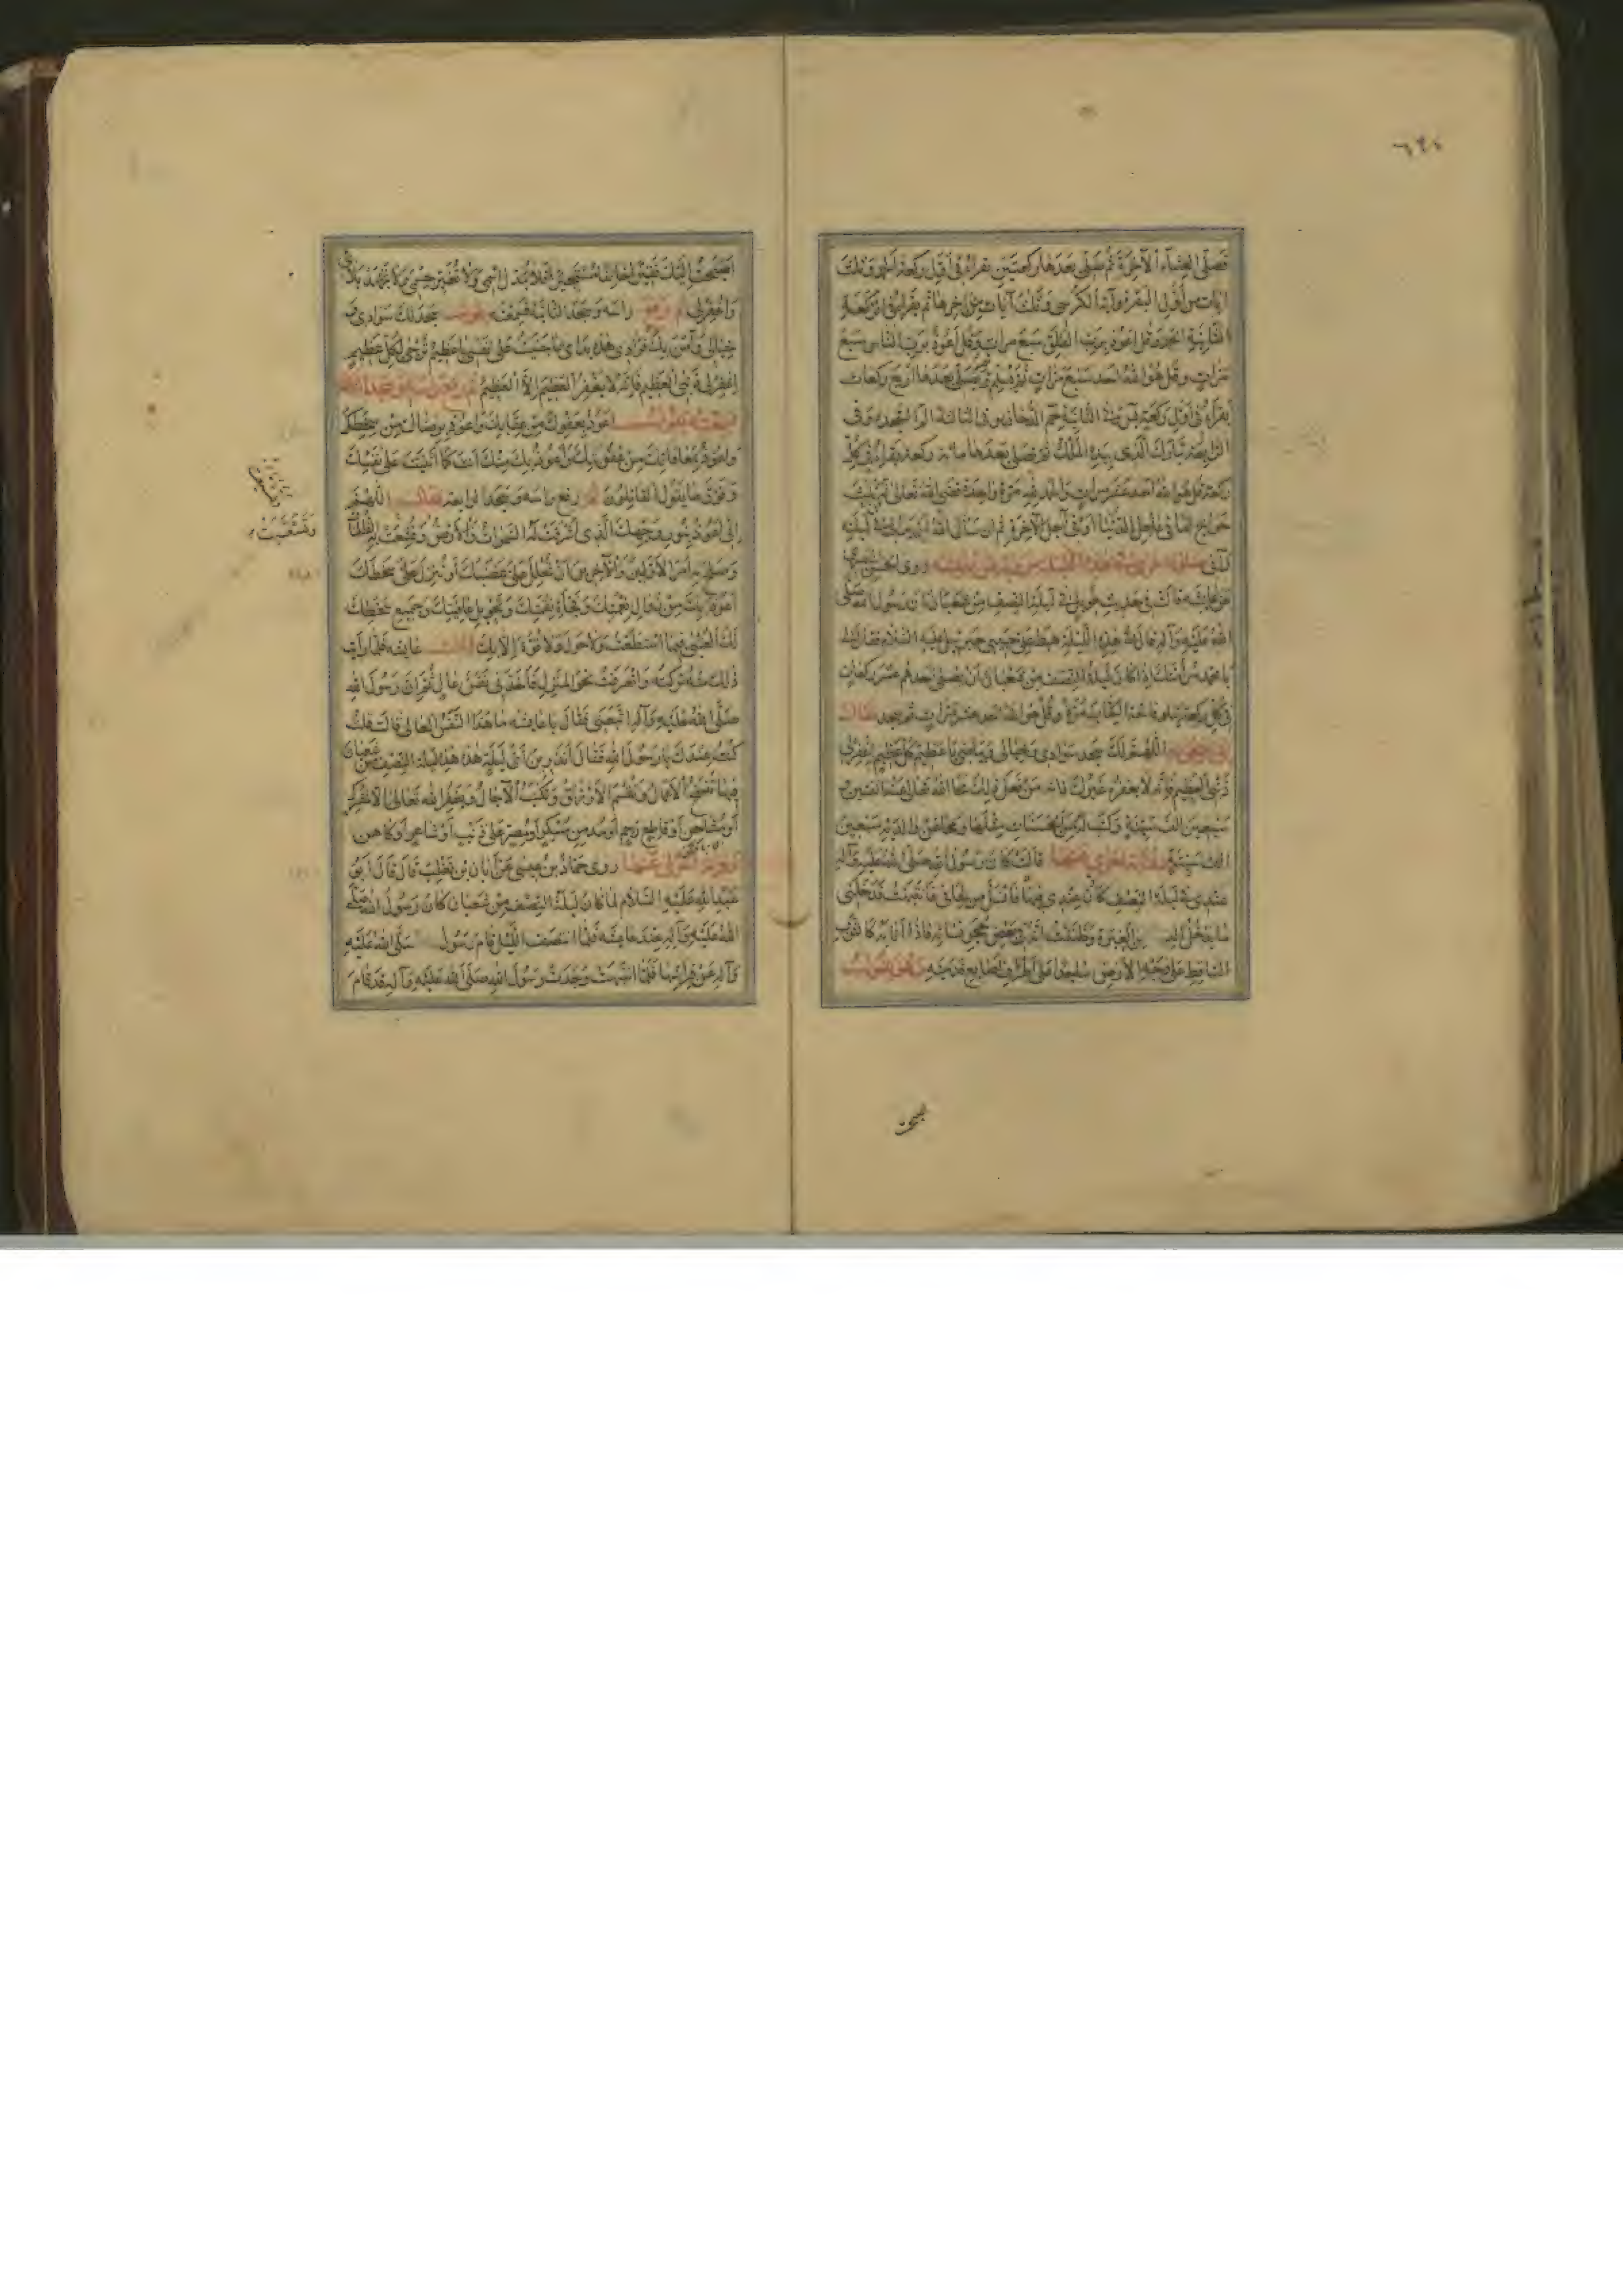 فصلى العشاء الآخرة ثم صلى بعدها ركعتين يقرأ في أول ركعة الحمد وثلث
ايات من أول البقرة وآية الكرسي وثلث آيات من اخرها ثم يقرأ في الركعة
الثانية الحمد وقل اعوذ برب الفلق سبع مرات وقل أعوذ برب الناس سبع
مرات وقل هو الله احد سبع مرات ثم يسلم ثم يصلى بعدها أربع ركعات
يقرأ في أول ركعة يس وفي الثانية حم الدخان وفي الثالثة الم السجدة وفي
الرابعة تبارك الذي بيده الملك ثم يصلى بعدها مائة ركعة يقرأ في كل
ركعة قل هو الله احد عشر مرات والحمد لله مرة واحدة قضى الله تعالى له ثلث
حوائج اما في عاجل الدنيا أو في آجل الآخرة ثم ان سأل الله ان يراني في ليلته
رآني صلوة اخرى في هذه الليلة روى الحسن البصري
عن عايشة قالت في حديث طويل في ليلة النصف من شعبان ان رسول الله صلى
الله عليه وآله قال في هذه الليلة هبط علي حبيبي جبرئيل عليه السلام فقال لي
يا محمد مر أمتك إذا كان ليلة النصف من شعبان أن يصلى أحدهم عشر ركعات
في كل ركعة يتلو فاتحة الكتاب مرة وقل هو الله احد عشر مرات ثم يسجد فقال
في سجوده اللهم لك سجد سوادي وخيالي وبياضي يا عظيم كل عظيم اغفر لي
ذنبي العظيم فإنه لا يغفره غيرك فانه من فعل ذلك محا الله تعالى عنه اثنتين و
سبعين الف سيئة وكتب له من الحسنات مثلها ومحا عن والديه سبعين
الف سيئة قالت كان رسول الله صلى الله عليه وآله
عندي في ليلة النصف كان عندي فيها فانسل من لحافي فانتبهت فدخلني
ما يدخل النساء من الغيرة وظننت انه في بعض حجر نسائه فاذا انا به كالثوب
الساقط على وجه الأرض ساجدا على أطراف أصابع قدميه وهو يقول
اصبحت إليك فقيرا خائفا مستجيرا فلا تبدل اسمي ولا تغير جسمي ولا تجهد بلائي
واغفر لي ثم رفع راسه وسجد الثانية فسمعته يقول سجد لك سوادي و
خيالي وآمن بك فؤادي هذه يداي بما جنيت على نفسي يا عظيم ترجى لكل عظيم
اغفر لي ذنبي العظيم فانه لا يغفر العظيم إلا العظيم ثم رفع راسه وسجد الثالثة
فسمعته يقول اعوذ بعفوك من عقابك واعوذ برضاك من سخطك
واعوذ بمعافاتك من عقوبتك وأعوذ بك منك انت كما أثنيت على نفسك
وفوق ما يقول القائلون ثم رفع راسه وسجد الرابعة فقال اللهم
إني اعوذ بنور وجهك الذي اشرقت له السموات والأرض وقشعت به الظلمات
وصلح به أمر الأولين والآخرين ان تحل علي غضبك أو تنزل علي سخطك
أعوذ بك من زوال نعمتك وفجأة نقمتك وتحويل عافيتك وجميع سخطك
لك العتبى فيما استطعت ولا حول ولا قوة إلا بك قالت عايشة فلما رأيت
ذلك منه تركته وانصرفت نحو المنزل فأخذني نفس عال ثم إن رسول الله
صلى الله عليه وآله اتبعني فقال يا عايشة ما هذا النفس العالي قالت قلت
كنت عندك يا رسول الله فقال أتدرين أي ليلة هذه هذه ليلة النصف من شعبان
فيها تنسخ الأعمال وتقسم الأرزاق وتكتب الآجال ويغفر الله تعالى إلا لمشرك
أو مشاحن أو قاطع رحم أو مدمن مسكر أو مصر على ذنب أو شاعر أو كاهن
روى حماد بن عيسى عن أبان بن تغلب قال قال أبو
عبد الله عليه السلام لما كان ليلة النصف من شعبان كان رسول الله صلى
الله عليه وآله عند عايشة فلما انتصف الليل قام رسول صلى الله عليه
وآله عن فراشها فلما انتبهت وجدت رسول الله صلى الله عليه وآله قد قام
وقشعت